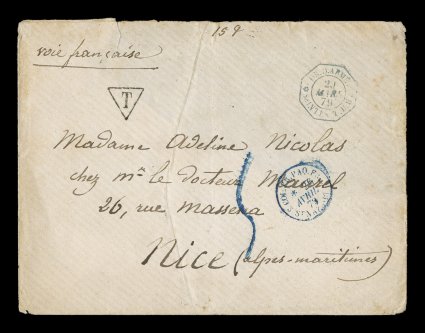 15 g
voie française
T
23
MARS
79
Madame Adeline Nicolas
chez mr le docteur Maurel
AVRIL
79
26, rue massena
5
Nice (alpes-maritimes)